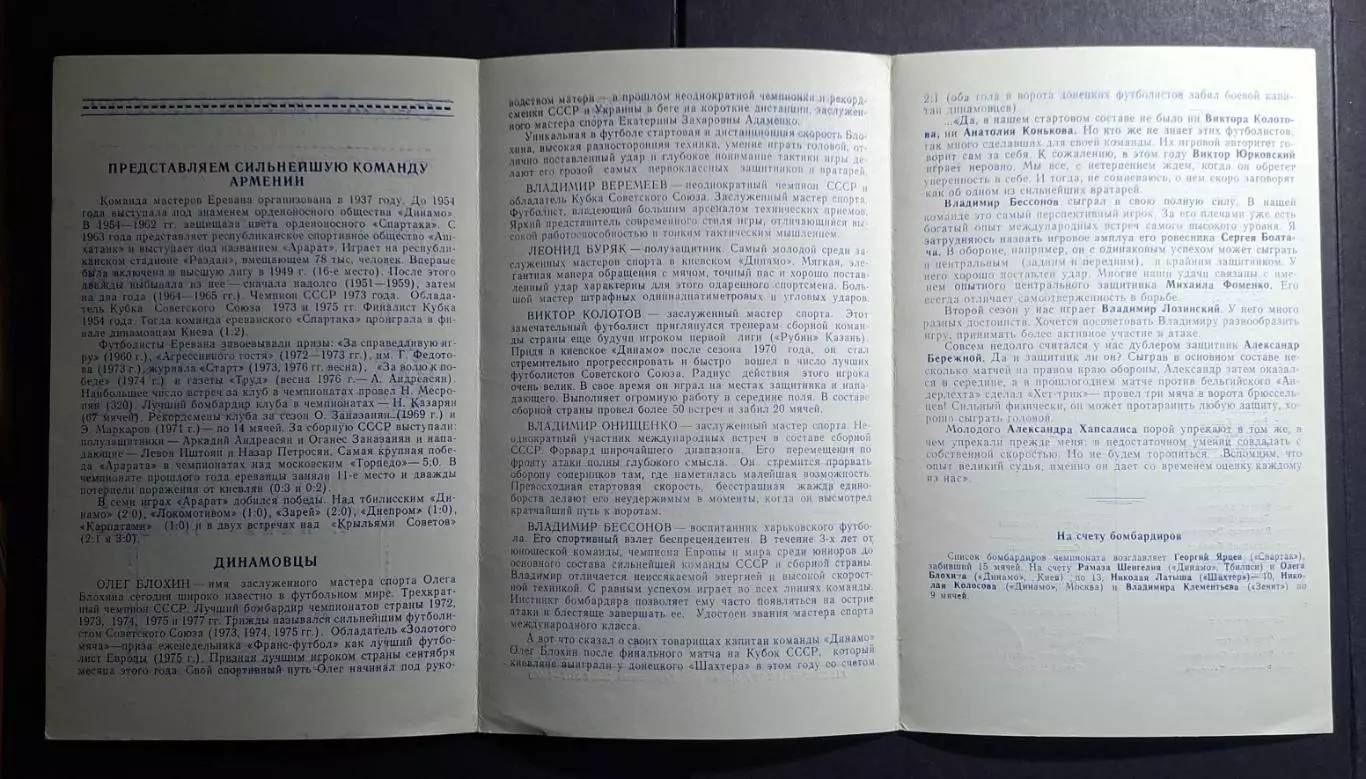 ПРЕДСТАВЛЯЕМ СИЛЬНЕЙШУЮ КОМАНДУ
АРМЕНИИ
Команда мастеров Еревана организована в 1937 году. До 1954
года выступала под знаменем орденоносного общества «Динамо».
В 1954—1962 гг. защищала цвета орденоносного «Спартака». С
1963 года представляет республиканское спортивное общество «Аш-
хатанк» и выступает под названием «Арарат». Играет на республи-
канском стадионе «Раздан», вмещающем 78 тыс. человек. Впервые
была включена в высшую лигу в 1949 г. (16-е место). После этого
дважды выбывала из нее — сначала надолго (1951—1959), затем
на два года (1964—1965 гг.). Чемпион СССР 1973 года. Облада-
тель Кубка Советского Союза 1973 и 1975 гг. Финалист Кубка
1954 года. Тогда команда ереванского «Спартака» проиграла в фи-
нале динамовцам Киева (1:2).
Футболисты Еревана завоевывали призы: «За справедливую иг-
ру» (1960 г.), «Агрессивного гостя» (1972—1973 гг.), им. Г. Федото-
ва (1973 г.), журнала «Старт» (1973, 1976 гг. весна), «За волю к по-
беде» (1974 г.) и газеты «Труд» (весна 1976 — А. Андреасян).
Наибольшее число встреч за клуб в чемпионатах провел Н. Месро-
пян (320). Лучший бомбардир клуба в чемпионатах — Н. Казарян
(67 мячей). Рекордсмены клуба за сезон О. Заназанян (1969 г.) и
Э. Маркаров (1971 г.) — по 14 мячей. За сборную СССР выступали:
полузащитники — Аркадий Андреасян и Оганес Заназанян и напа-
дающие — Левон Иштоян и Назар Петросян. Самая крупная побе-
да «Арарата» в чемпионатах над московским «Торпедо» — 5:0. В
чемпионате прошлого года ереванцы заняли 11-е место и дважды
потерпели поражения от киевлян (0:3 и 0:2).
В семи играх «Арарат» добился победы. Над тбилисским «Ди-
намо» (2:0), «Локомотивом» (1:0), «Зарей» (2:0), «Днепром» (1:0),
«Карпатами» (1:0) и в двух встречах над «Крыльями Советов»
(2:1 и 3:0).
ДИНАМОВЦЫ
ОЛЕГ БЛОХИН — имя заслуженного мастера спорта Олега
Блохина сегодня широко известно в футбольном мире. Трехкрат-
ный чемпион СССР. Лучший бомбардир чемпионатов страны 1972,
1973, 1974, 1975 и 1977 гг. Трижды назывался сильнейшим футболи-
стом Советского Союза (1973, 1974, 1975 г.). Обладатель «Золотого
мяча» — приза еженедельника «Франс-футбол» как лучший футбо-
лист Европы (1975 г.). Признан лучшим игроком страны сентября
месяца этого года. Свой спортивный путь Олег начинал под руко-
водством матери — в прошлом неоднократной чемпионки и рекорд-
сменки СССР и Украины в беге на короткие дистанции, заслужен-
ного мастера спорта Екатерины Захаровны Адаменко.
Уникальная в футболе стартовая и дистанционная скорость Бло-
хина, высокая разносторонняя техника, умение играть головой, от-
лично поставленный удар и глубокое понимание тактики игры де-
лают его грозой самых первоклассных защитников и вратарей.
ВЛАДИМИР ВЕРЕМЕЕВ — неоднократный чемпион СССР и
обладатель Кубка Советского Союза. Заслуженный мастер спорта.
Футболист, владеющий большим арсеналом технических приемов.
Яркий представитель современного стиля игры, отличающийся вы-
сокой работоспособностью и тонким тактическим мышлением.
ЛЕОНИД БУРЯК — полузащитник. Самый молодой среди за-
служенных мастеров спорта в киевском «Динамо». Мягкая, эле-
гантная манера обращения с мячом, точный пас и хорошо постав-
ленный удар характерны для этого одаренного спортсмена. Боль-
шой мастер штрафных одиннадцатиметровых и угловых ударов.
ВИКТОР КОЛОТОВ — заслуженный мастер спорта. Этот
замечательный футболист приглянулся тренерам сборной коман-
ды страны еще будучи игроком первой лиги («Рубин» Казань).
Придя в киевское «Динамо» после сезона 1970 года, он стал
стремительно прогрессировать и быстро вошел в число лучших
футболистов Советского Союза. Радиус действия этого игрока
очень велик. В свое время он играл на местах защитника и напа-
дающего. Выполняет огромную работу в середине поля. В составе
сборной страны провел более 50 встреч и забил 20 мячей.
ВЛАДИМИР ОНИЩЕНКО — заслуженный мастер спорта. Не-
однократный участник международных встреч в составе сборной
СССР. Форвард широчайшего диапазона. Его перемещения по
фронту атаки полны глубокого смысла. Он стремится прорвать
оборону соперников там, где наметилась малейшая возможность.
Превосходная стартовая скорость, бесстрашная жажда едино-
борств делают его неудержимым в моменты, когда он высмотрел
кратчайший путь к воротам.
ВЛАДИМИР БЕССОНОВ — воспитанник харьковского футбо-
ла. Его спортивный взлет беспрецендентен. В течение 3-х лет от
юношеской команды, чемпиона Европы и мира среди юниоров до
основного состава сильнейшей команды СССР и сборной страны.
Владимир отличается неиссякаемой энергией и высокой скорост-
ной техникой. С равным успехом играет во всех линиях команды.
Инстинкт бомбардира позволяет ему часто появляться на острие
атаки и блестяще завершать ее. Удостоен звания мастера спорта
международного класса.
А вот что сказал о своих товарищах капитан команды «Динамо»
Олег Блохин после финального матча на Кубок СССР, который
киевляне выиграли у донецкого «Шахтера» в этом году со счетом
2:1 (оба гола в ворота донецких футболистов забил боевой капи-
тан динамовцев).
...«Да, в нашем стартовом составе не было ни Виктора Колото-
ва, ни Анатолия Конькова. Но кто же не знает этих футболистов,
так много сделавших для своей команды. Их игровой авторитет го-
ворит сам за себя. К сожалению, в этом году Виктор Юрковский
играет неровно. Мы все, с нетерпением ждем, когда он обретет
уверенность в себе. И тогда, не сомневаюсь, о нем скоро заговорят
как об одном из сильнейших вратарей.
Владимир Бессонов сыграл в свою полную силу. В нашей
команде это самый перспективный игрок. За его плечами уже есть
богатый опыт международных встреч самого высокого уровня. Я
затрудняюсь назвать игровое амплуа его ровесника Сергея Болта-
ча. В обороне, например, он с одинаковым успехом может сыграть
и центральным (задним и передним), и крайним защитником. У
него хорошо поставлен удар. Многие наши удачи связаны с име-
нем опытного центрального защитника Михаила Фоменко. Его
всегда отличает самоотверженность в борьбе.
Второй сезон у нас играет Владимир Лозинский. У него много
разных достоинств. Хочется посоветовать Владимиру разнообразить
игру, принимать более активное участие в атаке.
Совсем недолго считался у нас дублером защитник Александр
Бережной. Да и защитник ли он? Сыграв в основном составе не-
сколько матчей на правом краю обороны, Александр затем оказал-
ся в середине, а в прошлогоднем матче против бельгийского «Ан-
дерлехта» сделал «Хет-трик» — провел три мяча в ворота брюссель-
цев! Сильный физически, он может протаранить любую защиту, хо-
рошо сыграть головой.
Молодого Александра Хапсалиса порой упрекают в том же, в
чем упрекали прежде меня: в недостаточном умении совладать с
собственной скоростью. Но не будем торопиться. Вспомним, что
опыт великий судья, именно он дает со временем оценку каждому
из нас».
На счету бомбардиров
Список бомбардиров чемпионата возглавляет Георгий Ярцев («Спартак»),
забивший 15 мячей. На счету Рамаза Шенгелия («Динамо», Тбилиси) и Олега
Блохина («Динамо», Киев) по 13, Николая Латыша («Шахтер») — 10, Нико-
лая Колосова («Динамо», Москва) и Владимира Клементьева («Зенит») по
9 мячей.